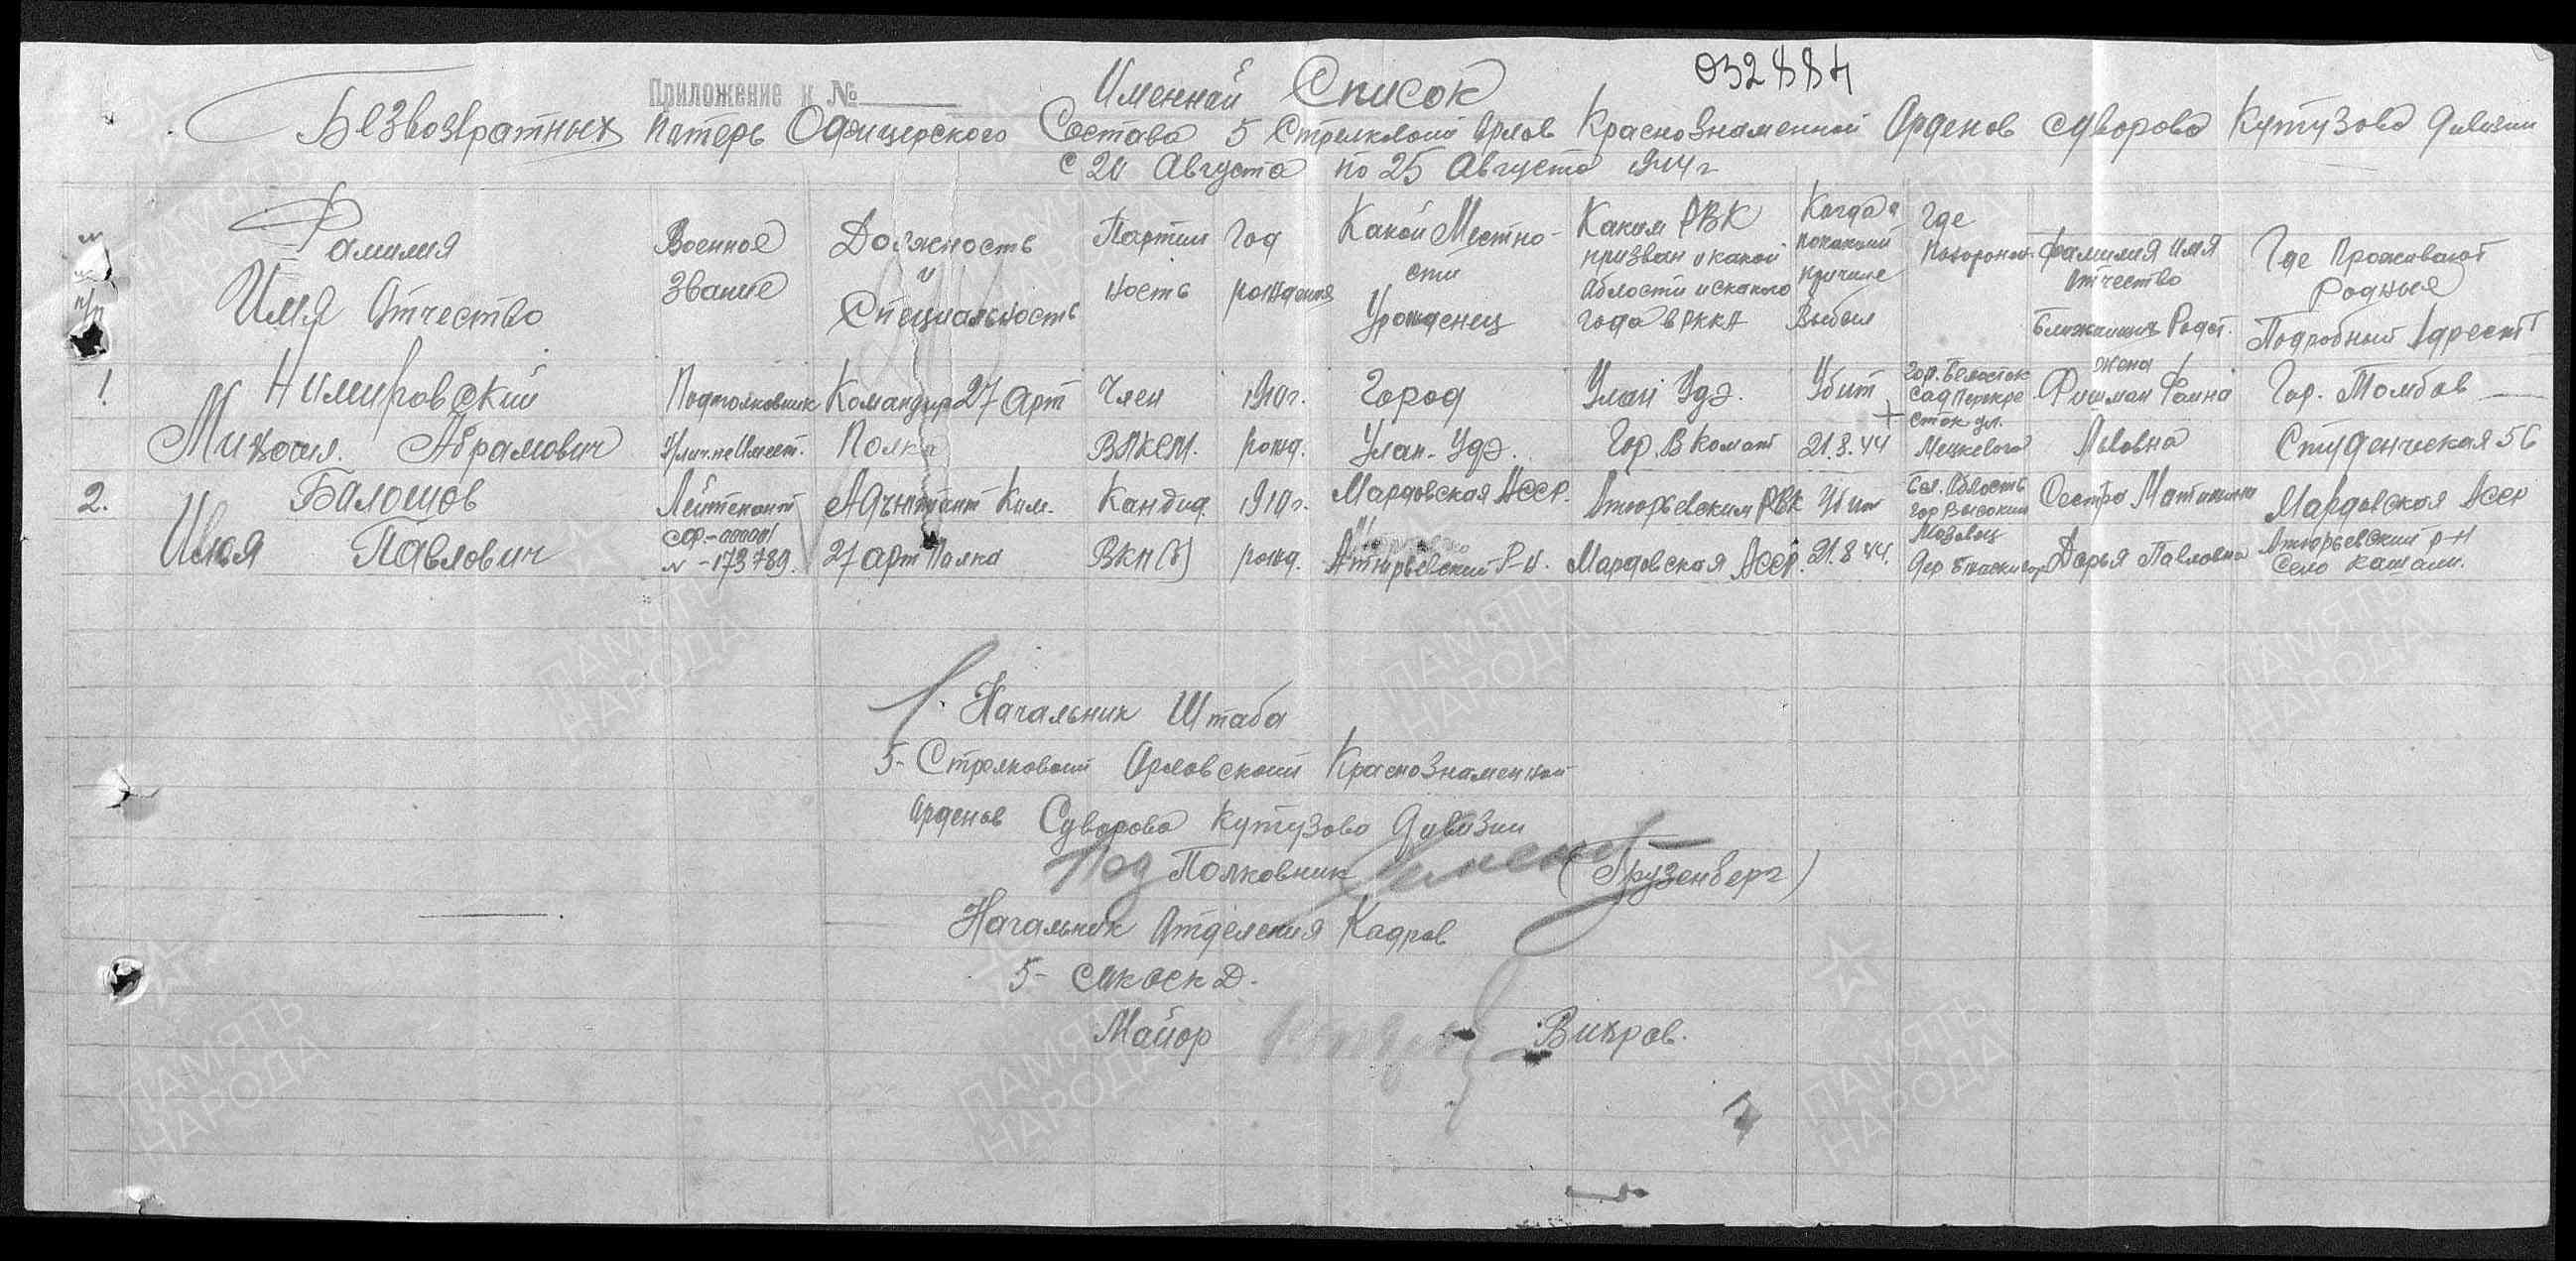 Приложение к №
Именной Список
032884
Безвозвратных Потерь Офицерского Состава 5 Стрелковой Орлов Краснознаменной Орденов Суворова Кутузова Дивизии
с 20 Августа по 25 Августа 1944 г
№ № п/п
Фамилия
Имя Отчество
Военное
Звание
Должность
и
Специальность
Партий
ность
Год
рождения
Какой Местно-
сти
Урожденец
Каким РВК
призван и какой
области и с какого
года в РККА
Когда и
по какой
причине
Выбыл
Где
Похоронен
Фамилия Имя
Отчество
Ближайших Родст.
Где Проживают
Родные
Подробный Адрест
1.
Нимировский
Михаил. Абрамович
Подполковник
У/лич. не Имеет.
Командир 27 Арт
Полка
Член
ВЛКСМ.
1910 г.
рожд.
Город
Улан-Удэ.
Улан Удэ.
Гор. В комат
Убит
21.8.44
Гор. Белосток
Сад Перекре
сток ул.
Мецкевога
жена
Фишман Фаина
Львовна
Гор. Томбов
Студенческая 56
2.
Балошов
Илья Павлович
Лейтенант
№ -173789.
Адъютант Ком.
27 Арт Полка
Кандид.
ВКП(б)
1910 г.
рожд.
Мардовская АССР.
Атюрьевский Р-н.
Атюрьевским РВК
Мардовская АССР.
Убит
21.8.44.
Бел. Область
Гор Высокий
Мазовец
Сестра
Дарья Павловна
Мардовская АССР
Атюрьевский р-н
Село Кашали.
Начальник Штаба
5- Стрелковой Орловской Краснознаменной
Орденов Суворова Кутузова Дивизии
Полковник (Грузенберг)
Начальник Отделения Кадров
5- СОКОСК Д.
Майор Вихров.
ПАМЯТЬ
НАРОДА